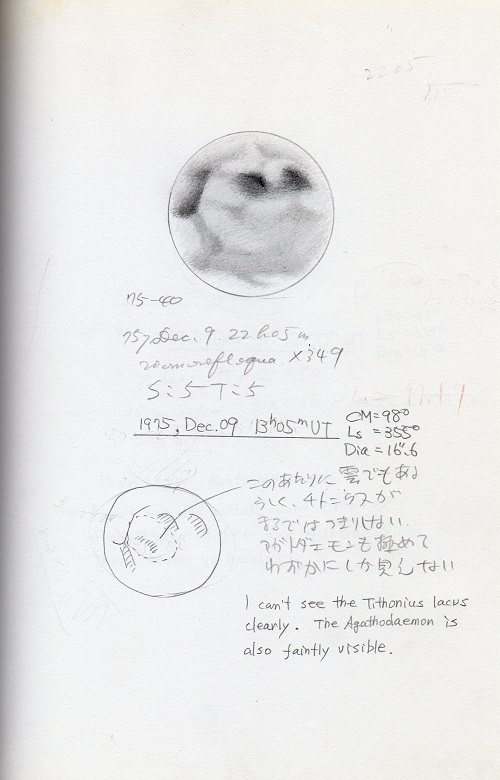 2205
75-40
75, Dec. 9. 22h05m
20cm refl equa. ×349
S:5 T:5
1975, Dec.09 13ʰ05ᵐUT
CM=98°
Ls =355°
Dia =16".6
このあたりに雲でもある
らしく、チトニウスが
まるではっきりしない.
アガトダエモンも極めて
わずかにしか見えない
I can't see the Tithonius lacus
clearly. The Agathodaemon is
also faintly visible.